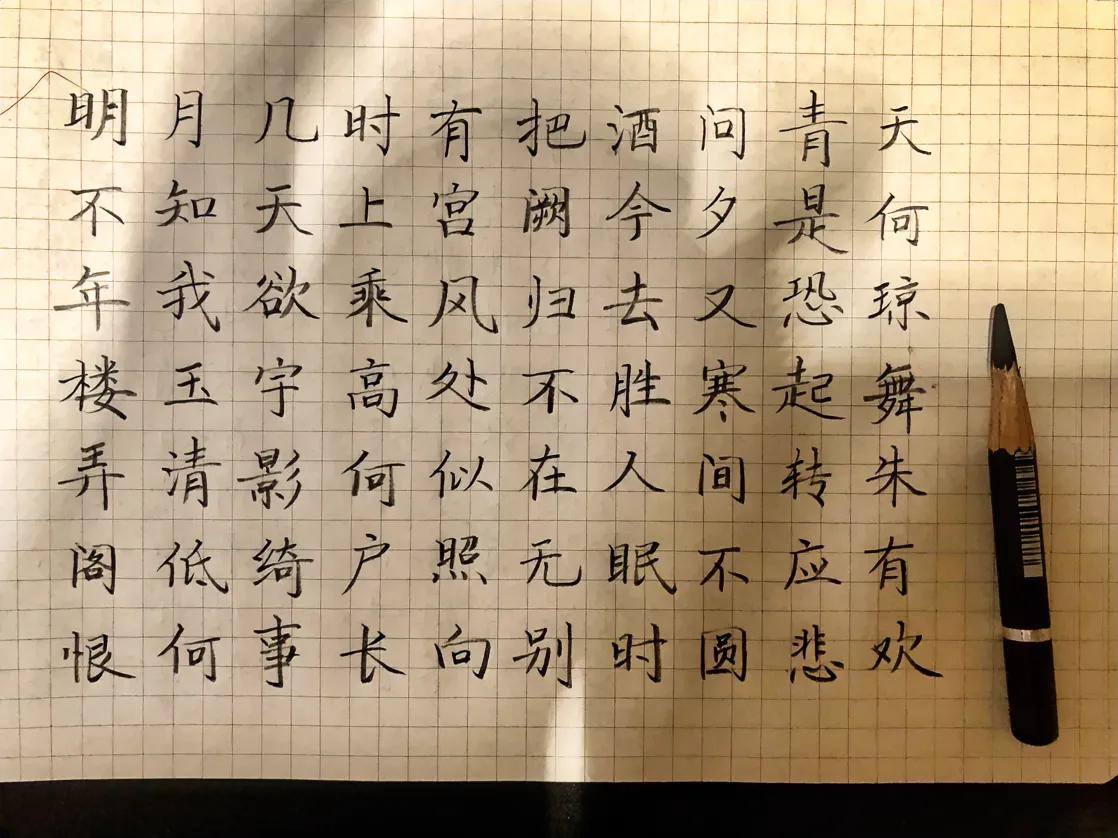 明月几时有把酒问青天
不知天上宫阙今夕是何
年我欲乘风归去又恐琼
楼玉宇高处不胜寒起舞
弄清影何似在人间转朱
阁低绮户照无眠不应有
恨何事长向别时圆悲欢